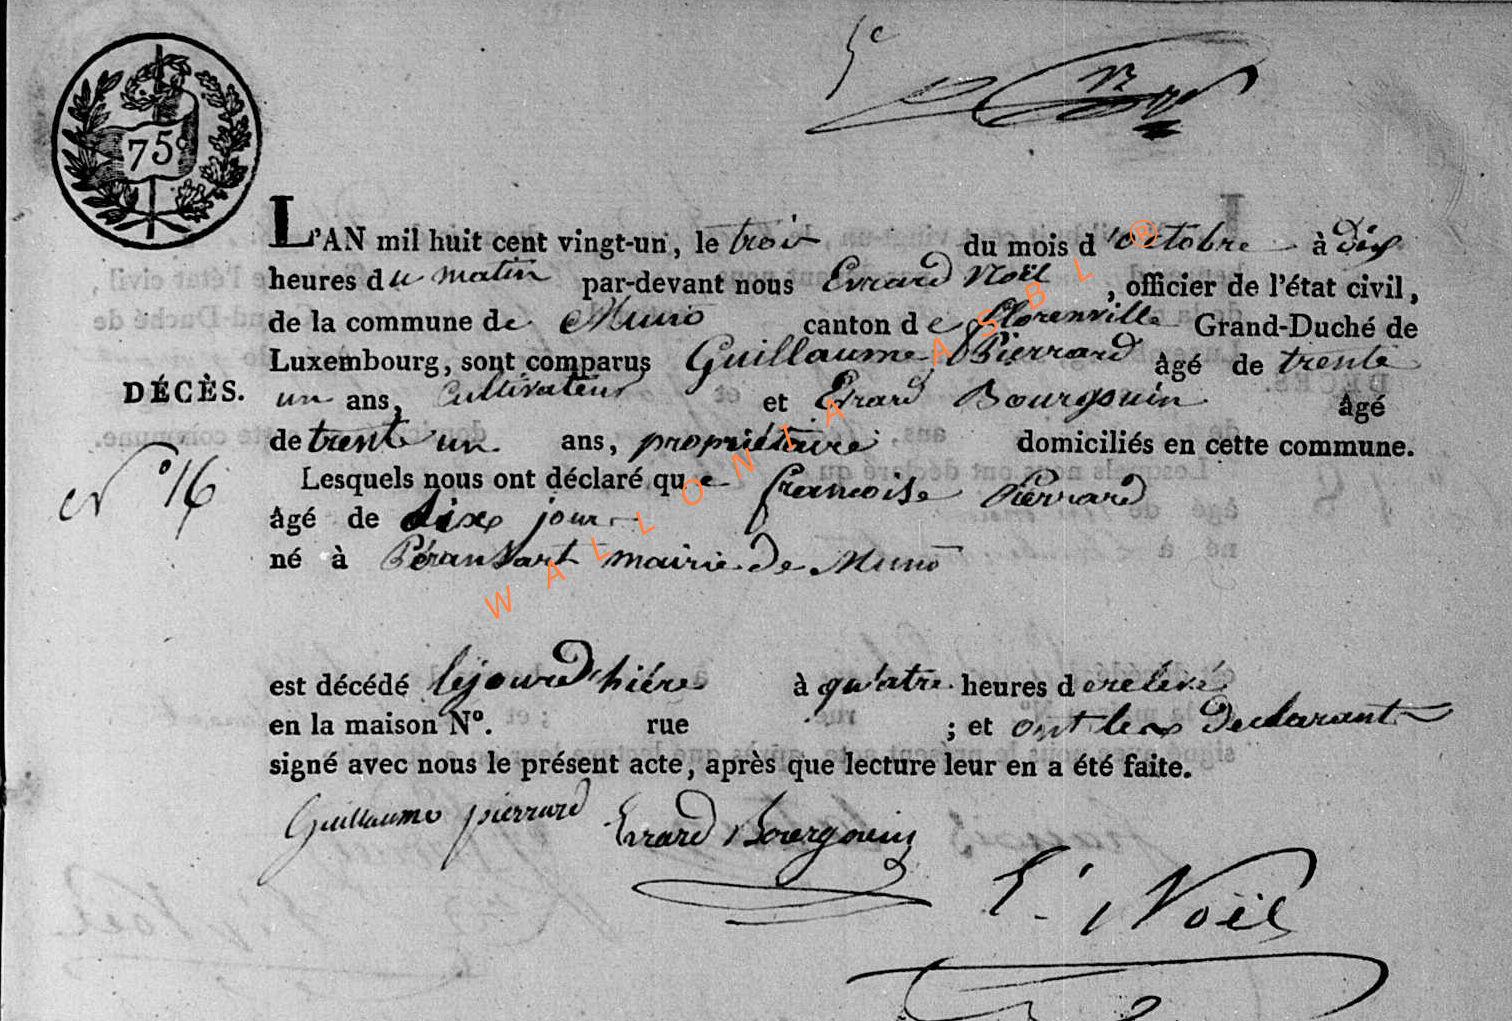 5e
75c
L'AN mil huit cent vingt-un, le trois du mois d'octobre à dix
heures du matin par-devant nous Evrard Noël, officier de l'état civil,
de la commune de Muno canton de Florenville Grand-Duché de
Luxembourg, sont comparus Guillaume Pierrard âgé de trente
DÉCÈS.
un ans, cultivateur et Evrard Bourgouin âgé
de trente un ans, propriétaire domiciliés en cette commune.
N° 16
Lesquels nous ont déclaré que francoise Pierrard
âgé de dix jour
né à Péransart mairie de Muno
est décédé lejourd'hiére à quatre heures de relevé
en la maison N°. rue ; et ont les declarant
signé avec nous le présent acte, après que lecture leur en a été faite.
Guillaume pierrard Evrard Bourgouin
E. Noël
WALLONIA ASBL ®